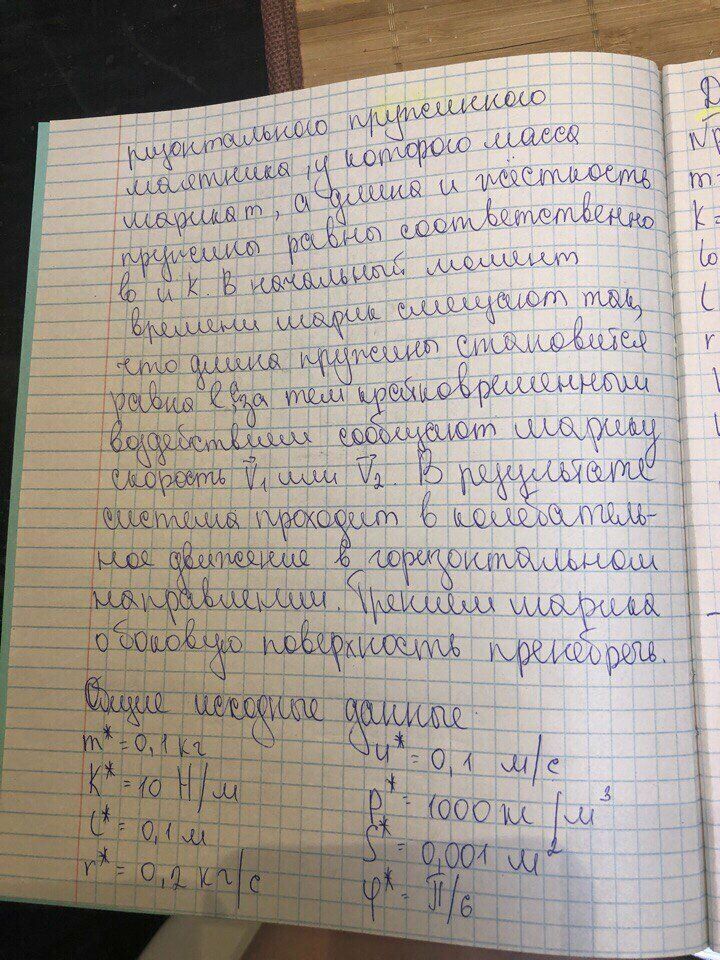 ризонтального пружинного
маятника, у которого масса
шарика m, а длина и жёсткость
пружины равны соответственно
l₀ и K. В начальный момент
времени шарик смещают так,
что длина пружины становится
равна l, за тем кратковременным
воздействием сообщают шарику
скорость V⃗₁ или V⃗₂. В результате
система проходит в колебатель-
ное движение в горизонтальном
направлении. Трением шарика
о боковую поверхность пренебречь.
Общие исходные данные.
m* = 0,1 кг
K* = 10 Н/м
l* = 0,1 м
r* = 0,2 кг/с
u* = 0,1 м/с
ρ* = 1000 кг/м³
S* = 0,001 м²
φ* = π/6
m
K =
l₀
r